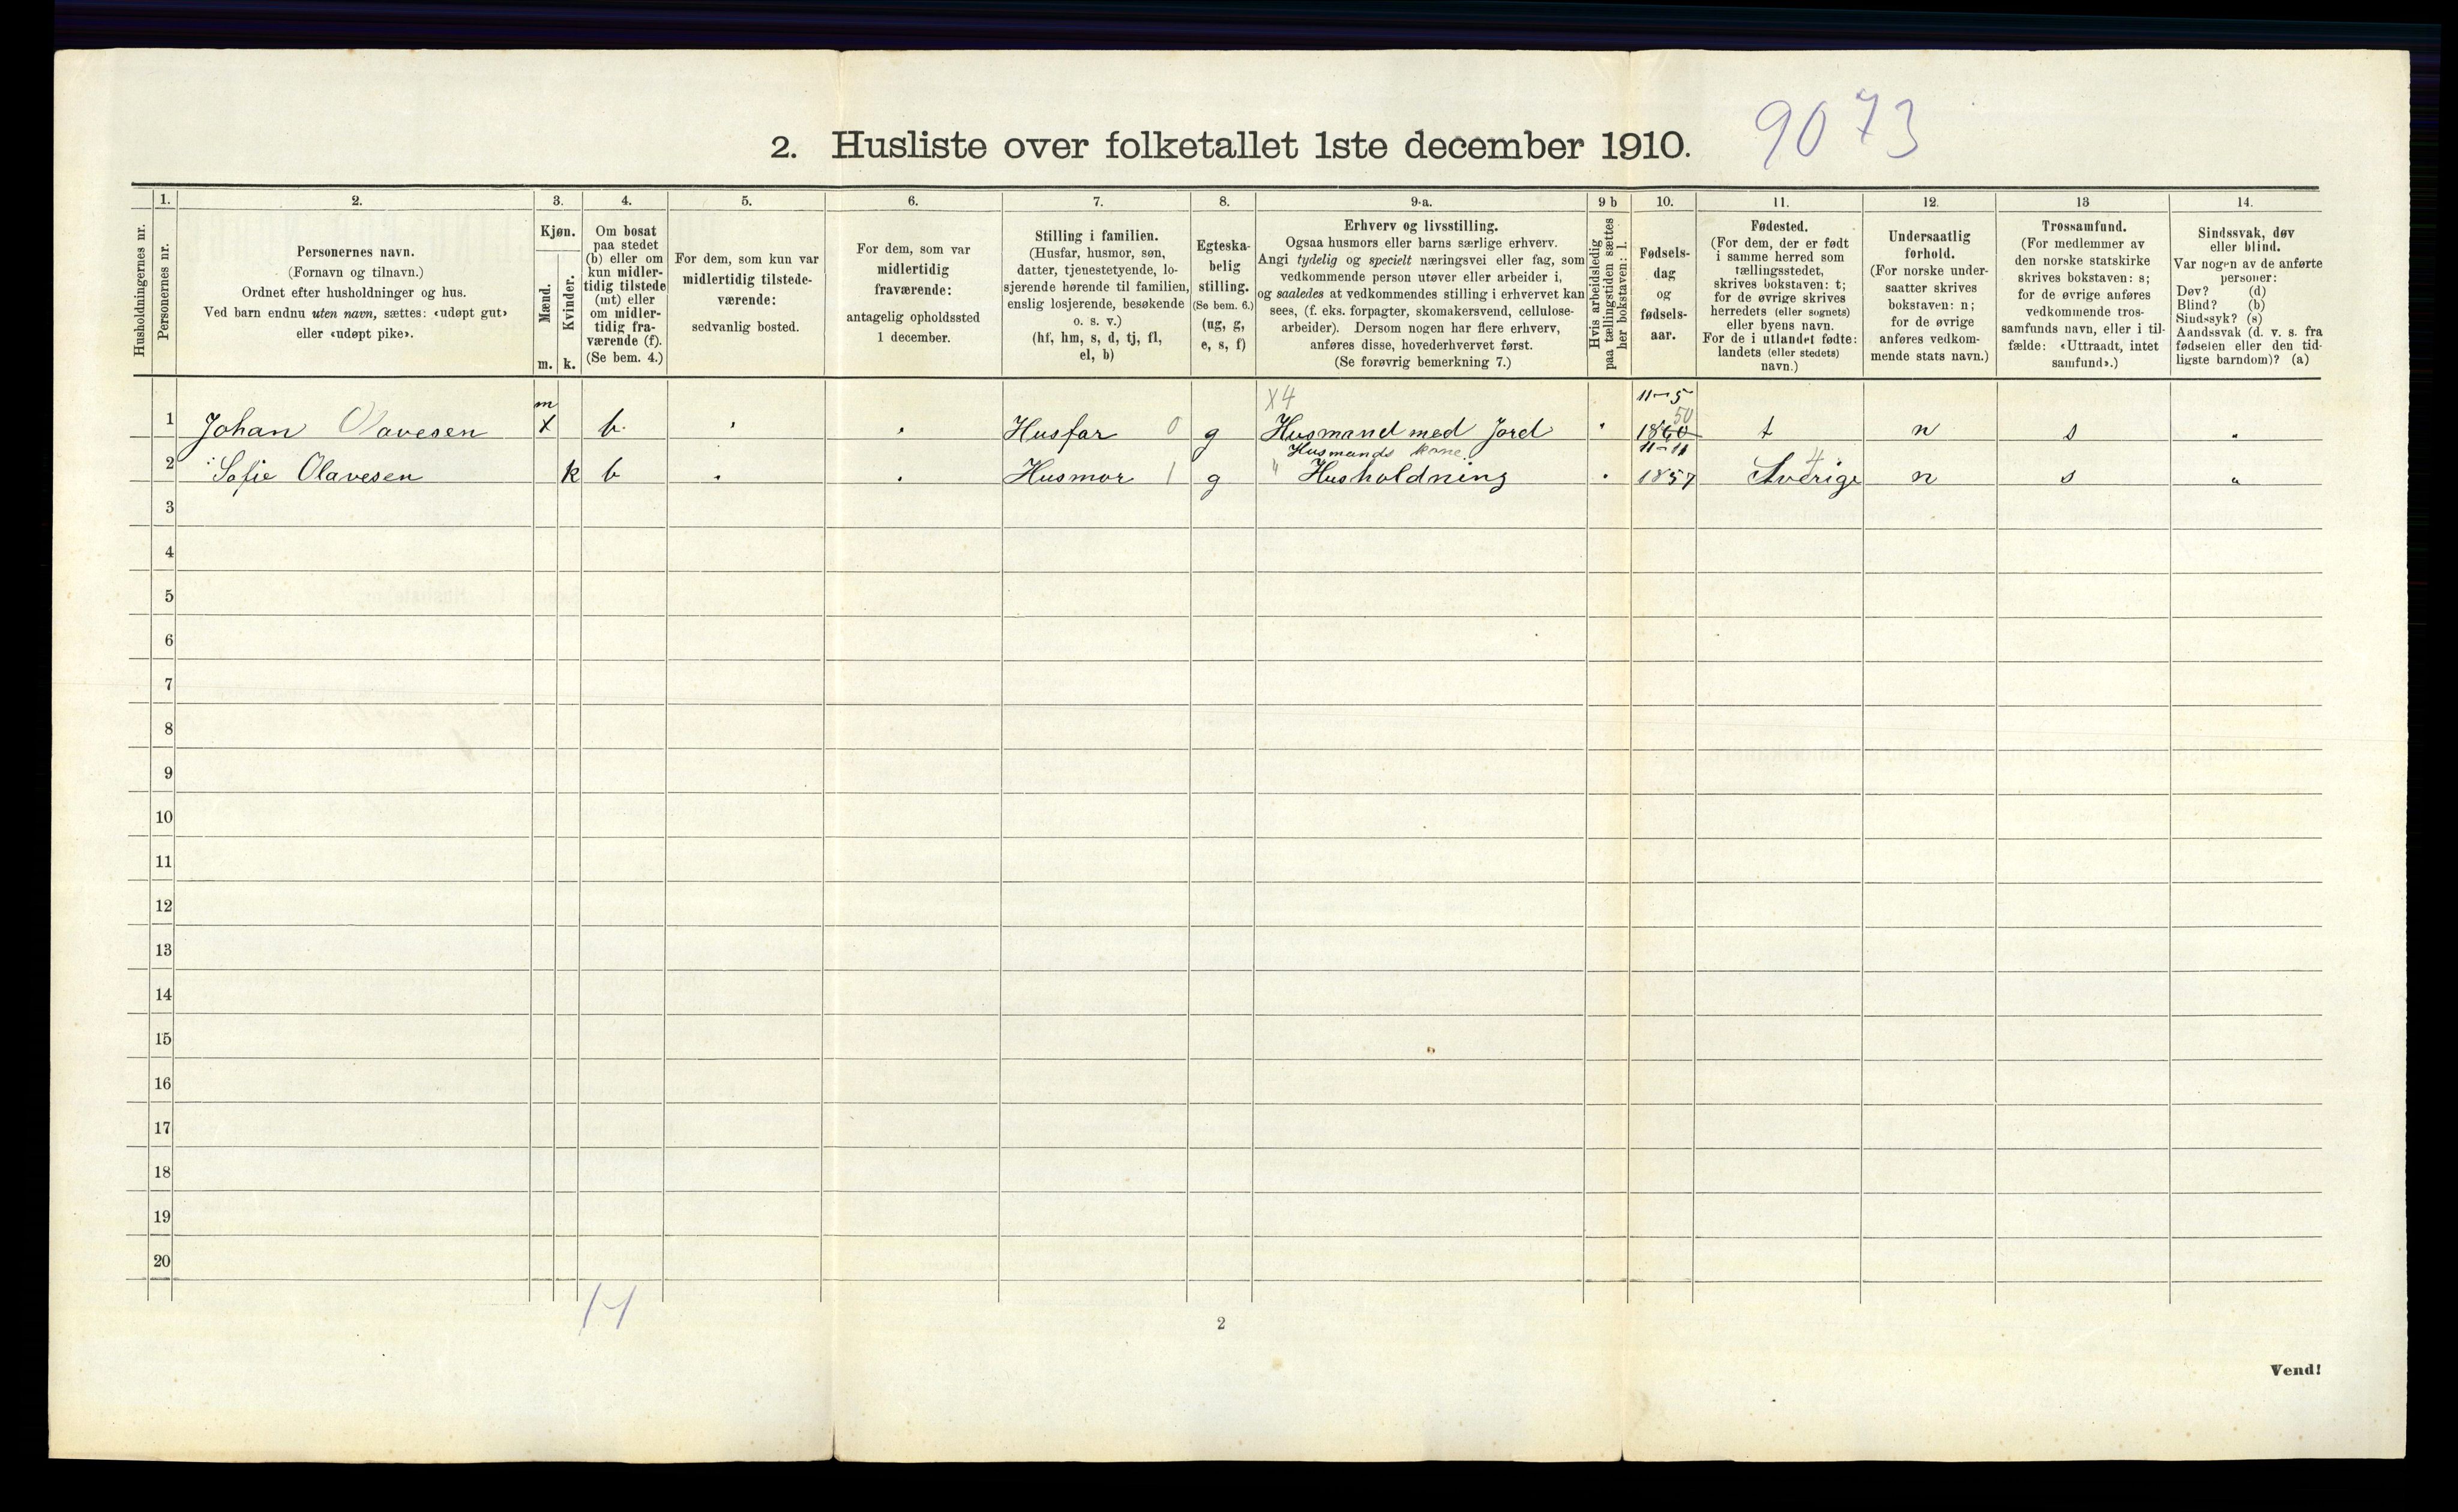 2. Husliste over folketallet 1ste december 1910.
9073
Husholdningernes nr.
1.
Personernes nr.
2.
Personernes navn.
(Fornavn og tilnavn.)
Ordnet efter husholdninger og hus.
Ved barn endnu uten navn, sættes: «udøpt gut»
eller «udøpt pike».
3.
Kjøn.
Mænd.
Kvinder.
m. k.
4.
Om bosat
paa stedet
(b) eller om
kun midler-
tidig tilstede
(mt) eller
om midler-
tidig fra-
værende (f).
(Se bem. 4.)
5.
For dem, som kun var
midlertidig tilstede-
værende:
sedvanlig bosted.
6.
For dem, som var
midlertidig
fraværende:
antagelig opholdssted
1 december.
7.
Stilling i familien.
(Husfar, husmor, søn,
datter, tjenestetyende, lo-
sjerende hørende til familien,
enslig losjerende, besøkende
o. s. v.)
(hf, hm, s, d, tj, fl,
el, b)
8.
Egteska-
belig
stilling.
(Se bem. 6.)
(ug, g,
e, s, f)
9 a.
Erhverv og livsstilling.
Ogsaa husmors eller barns særlige erhverv.
Angi tydelig og specielt næringsvei eller fag, som
vedkommende person utøver eller arbeider i,
og saaledes at vedkommendes stilling i erhvervet kan
sees, (f. eks. forpagter, skomakersvend, cellulose-
arbeider). Dersom nogen har flere erhverv,
anføres disse, hovederhvervet først.
(Se forøvrig bemerkning 7.)
9 b
Hvis arbeidsledig
paa tællingstiden sættes
her bokstaven: l.
10.
Fødsels-
dag
og
fødsels-
aar.
11.
Fødested.
(For dem, der er født
i samme herred som
tællingsstedet,
skrives bokstaven: t;
for de øvrige skrives
herredets (eller sognets)
eller byens navn.
For de i utlandet fødte:
landets (eller stedets)
navn.)
12.
Undersaatlig
forhold.
(For norske under-
saatter skrives
bokstaven: n;
for de øvrige
anføres vedkom-
mende stats navn.)
13
Trossamfund.
(For medlemmer av
den norske statskirke
skrives bokstaven: s;
for de øvrige anføres
vedkommende tros-
samfunds navn, eller i til-
fælde: «Uttraadt, intet
samfund».)
14.
Sindssvak, døv
eller blind.
Var nogen av de anførte
personer:
Døv? (d)
Blind? (b)
Sindssyk? (s)
Aandssvak (d. v. s. fra
fødselen eller den tid-
ligste barndom)? (a)
m X4 11-5
50
1 Johan Olavesen X b. Husfar 0 g Husmand med Jord 1860 t n s "
Husmands Kone. 11-11
4
2 Sofie Olavesen k b Husmor 1 g " Husholdning 1857 Sverige n s "
3
4
5
6
7
8
9
10
11
12
13
14
15
16
17
18
19
20
2
Vend!